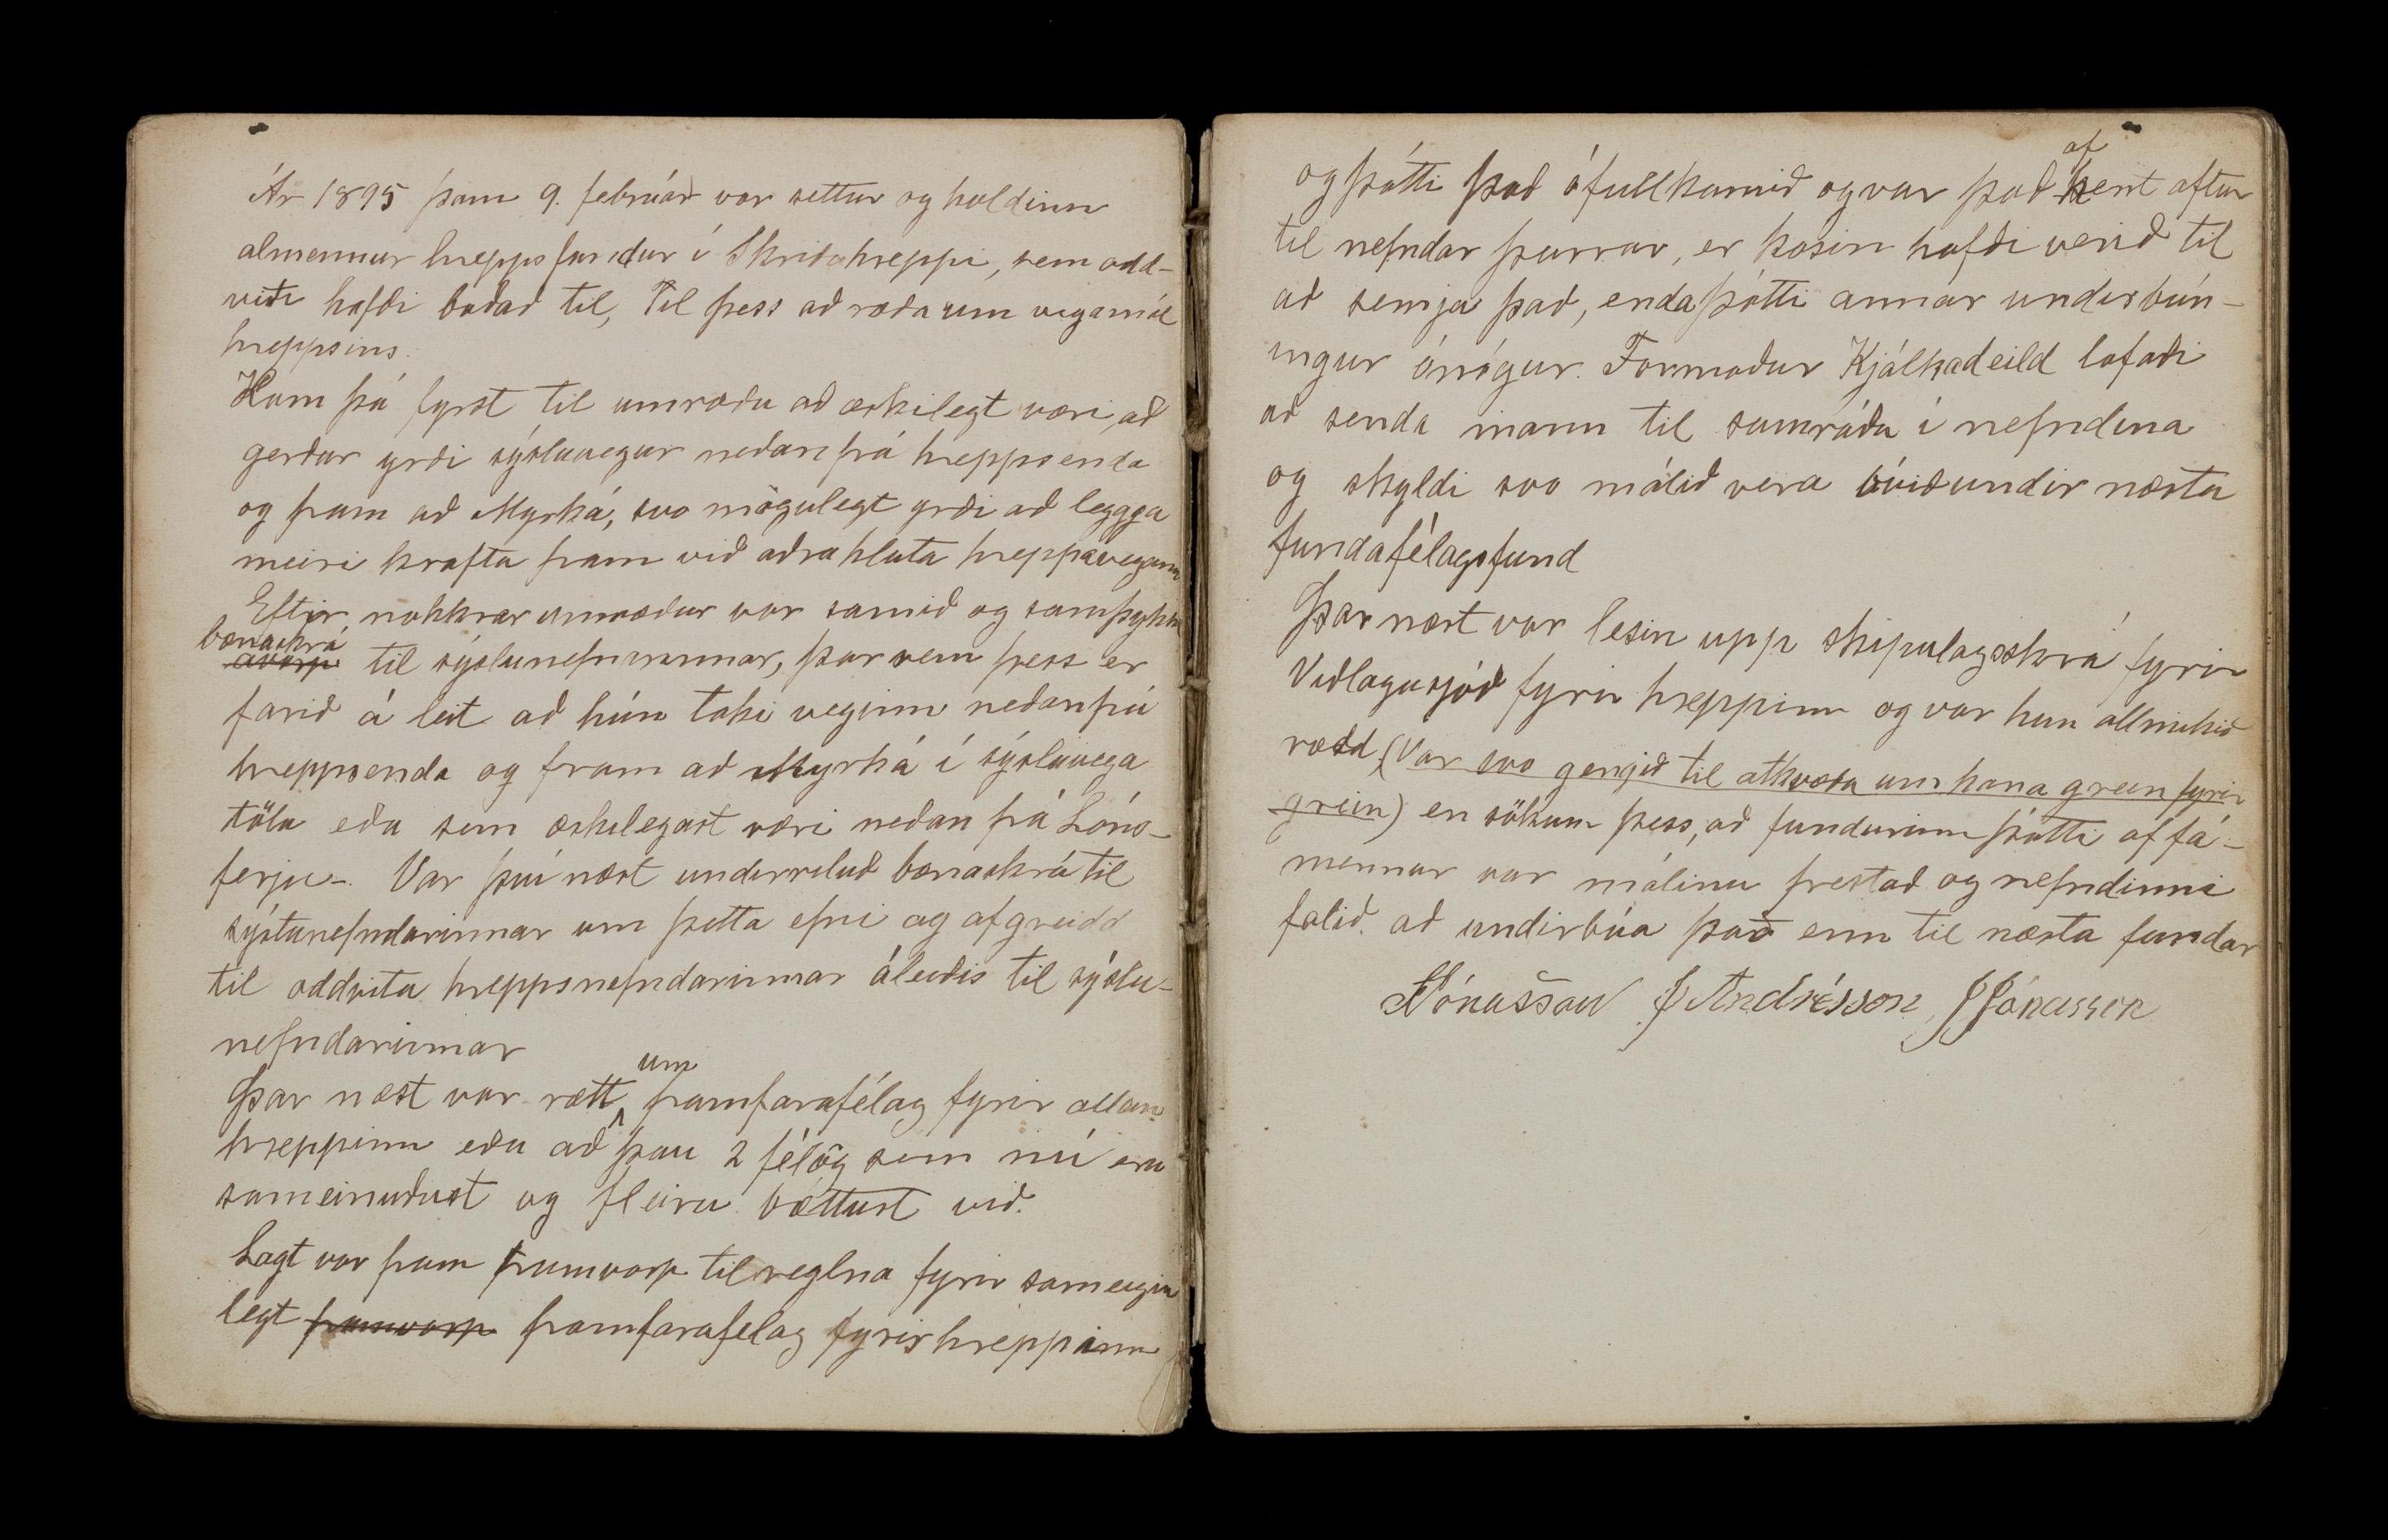 Ár 1895 þann 9. febrúar var settur og haldinn
almennur hreppsfundur í Skriðuhreppi, sem odd-
viti hafði boðað til, Til þess að ræða um vegamál
hreppsins.
Kom þá fyrst til umræðu að æskilegt væri, að
gerður yrði sýsluvegur neðan frá hreppsenda
og fram að Myrká, svo mögulegt yrði að leggja
meiri krafta fram við aðra hluta hreppavegarins
Eftir nokkrar umræður var samið og samþykt
bænaskrá
ávarp til sýslunefndarinnar, þar sem þess er
farið á leit að hún taki veginn neðan frá
hreppsenda og fram að Myrká í sýsluvega
tölu eða sem æskilegast væri neðan frá Lóns-
ferju-. Var því næst undirrituð bænaskrá til
sýslunefndarinnar um þetta efni og afgreidd
til oddvita hreppsnefndarinnar áleiðis til sýslu-
nefndarinnar
um
Þar næst var rætt framfarafélag fyrir allan
hreppinn eða að þau 2 félög sem nú eru
sameinuðust og fleiru bættust við.
Lagt var fram frumvarp til reglna fyrir sameigin
legt frumvarp framfarafélag fyrir hreppinn
af
og þótti það ófullkomið og var það hent aftur
til nefndar þeirrar, er kosin hafði verið til
að semja það, enda þótti annar undirbún-
ingur ónógur. Formaður Kjálkadeild lofaði
að senda mann til samráða í nefndina
og skyldi svo málið vera búið undir næsta
fundafélagsfund
Þar næst var lesin upp skipulagsskrá fyrir
Viðlagasjóð fyrir hreppinn og var hun allmikið
rædd, (Var svo gengið til atkvæða um hana grein fyrir
grein) en sökum þess, að fundurinn þótti of fá-
mennur var málinu frestað og nefndinni
falið. að undirbúa það enn til næsta fundar
J Andrésson JJónasson